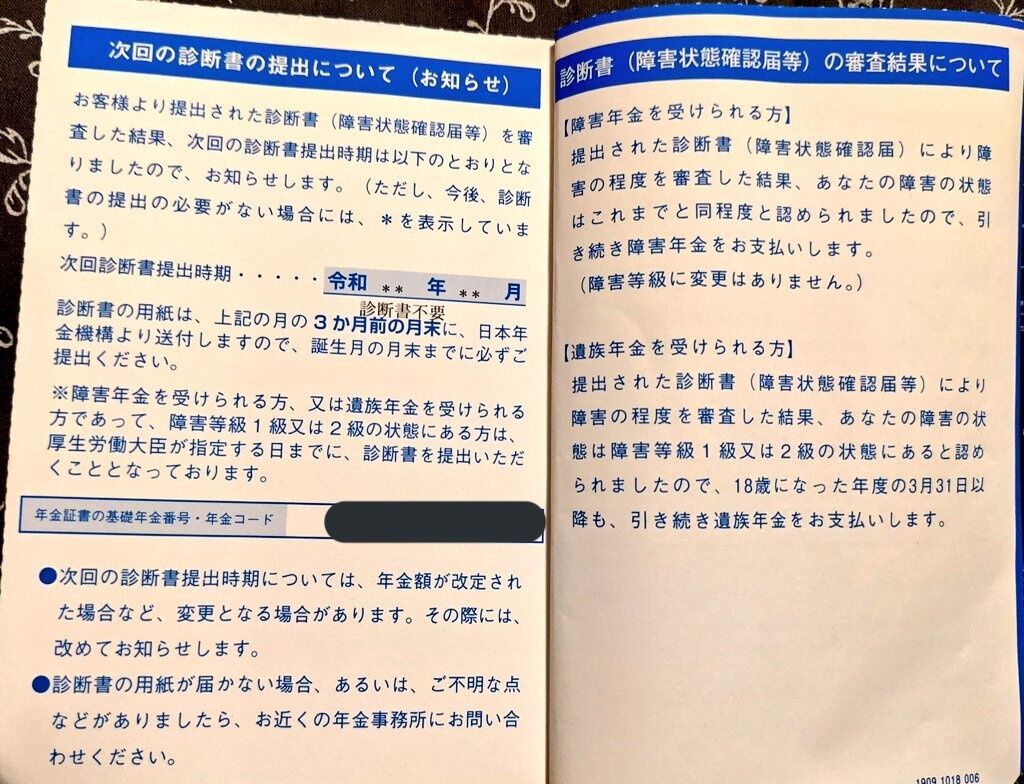 次回の診断書の提出について（お知らせ）
お客様より提出された診断書（障害状態確認届等）を審
査した結果、次回の診断書提出時期は以下のとおりとな
りましたので、お知らせします。（ただし、今後、診断
書の提出の必要がない場合には、＊を表示していま
す。）
次回診断書提出時期・・・・・令和 ** 年 ** 月
診断書不要
診断書の用紙は、上記の月の３か月前の月末に、日本年
金機構より送付しますので、誕生月の月末までに必ずご
提出ください。
※障害年金を受けられる方、又は遺族年金を受けられる
方であって、障害等級１級又は２級の状態にある方は、
厚生労働大臣が指定する日までに、診断書を提出いただ
くこととなっております。
年金証書の基礎年金番号・年金コード
●次回の診断書提出時期については、年金額が改定され
た場合など、変更となる場合があります。その際には、
改めてお知らせします。
●診断書の用紙が届かない場合、あるいは、ご不明な点
などがありましたら、お近くの年金事務所にお問い合
わせください。
診断書（障害状態確認届等）の審査結果について
【障害年金を受けられる方】
提出された診断書（障害状態確認届）により障
害の程度を審査した結果、あなたの障害の状態
はこれまでと同程度と認められましたので、引
き続き障害年金をお支払いします。
（障害等級に変更はありません。）
【遺族年金を受けられる方】
提出された診断書（障害状態確認届等）により
障害の程度を審査した結果、あなたの障害の状
態は障害等級１級又は２級の状態にあると認め
られましたので、18歳になった年度の3月31日以
降も、引き続き遺族年金をお支払いします。
1909 1018 006